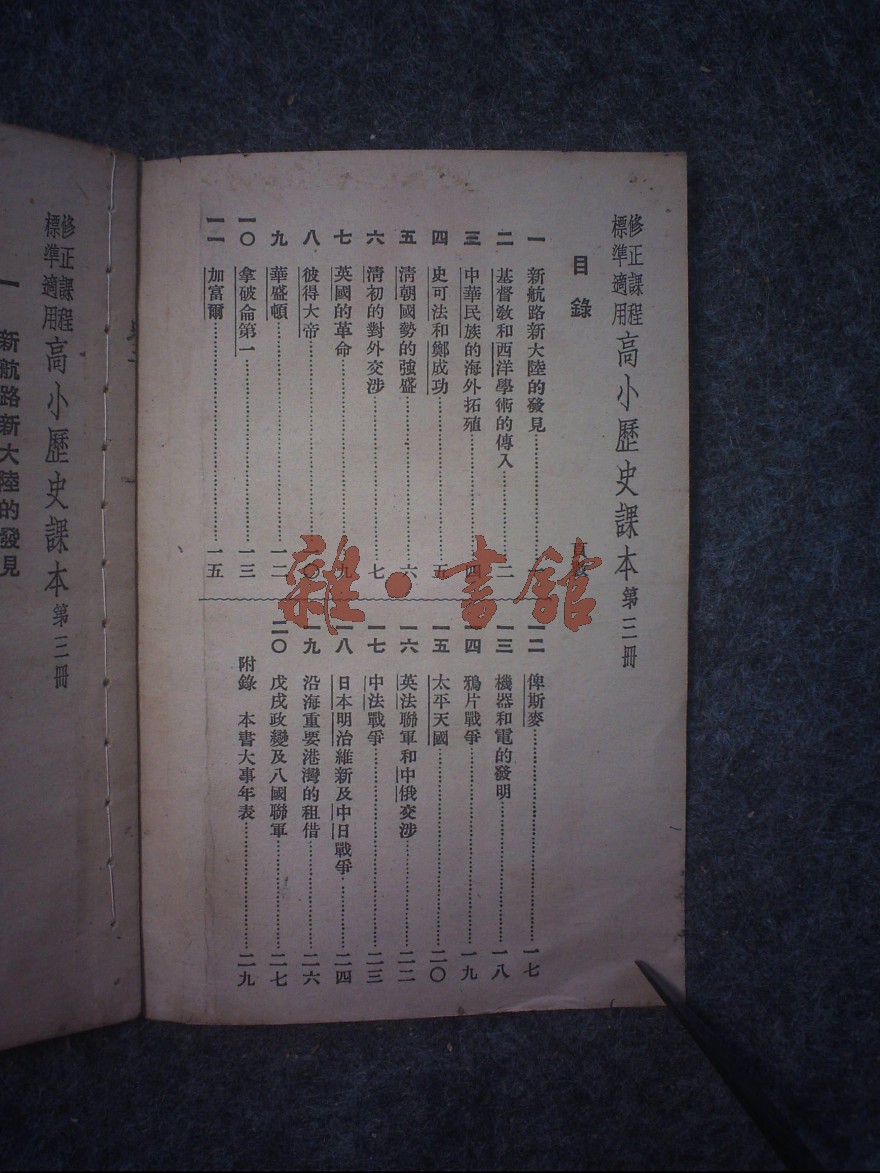 修正課程
標準適用
高小歷史課本 第三冊
目錄
一 新航路新大陸的發見
二 基督教和西洋學術的傳入 二
三 中華民族的海外拓殖 四
四 史可法和鄭成功 五
五 清朝國勢的強盛 六
六 清初的對外交涉 七
七 英國的革命 九
八 彼得大帝 一〇
九 華盛頓 一二
一〇 拿破侖第一 一三
一一 加富爾 一五
一二 俾斯麥 一七
一三 機器和電的發明 一八
一四 鴉片戰爭 一九
一五 太平天國 二〇
一六 英法聯軍和中俄交涉 二二
一七 中法戰爭 二三
一八 日本明治維新及中日戰爭 二四
一九 沿海重要港灣的租借 二六
二〇 戊戌政變及八國聯軍 二七
附錄 本書大事年表 二九
雜·書館
修正課程
標準適用
高小歷史課本 第三冊
一 新航路新大陸的發見